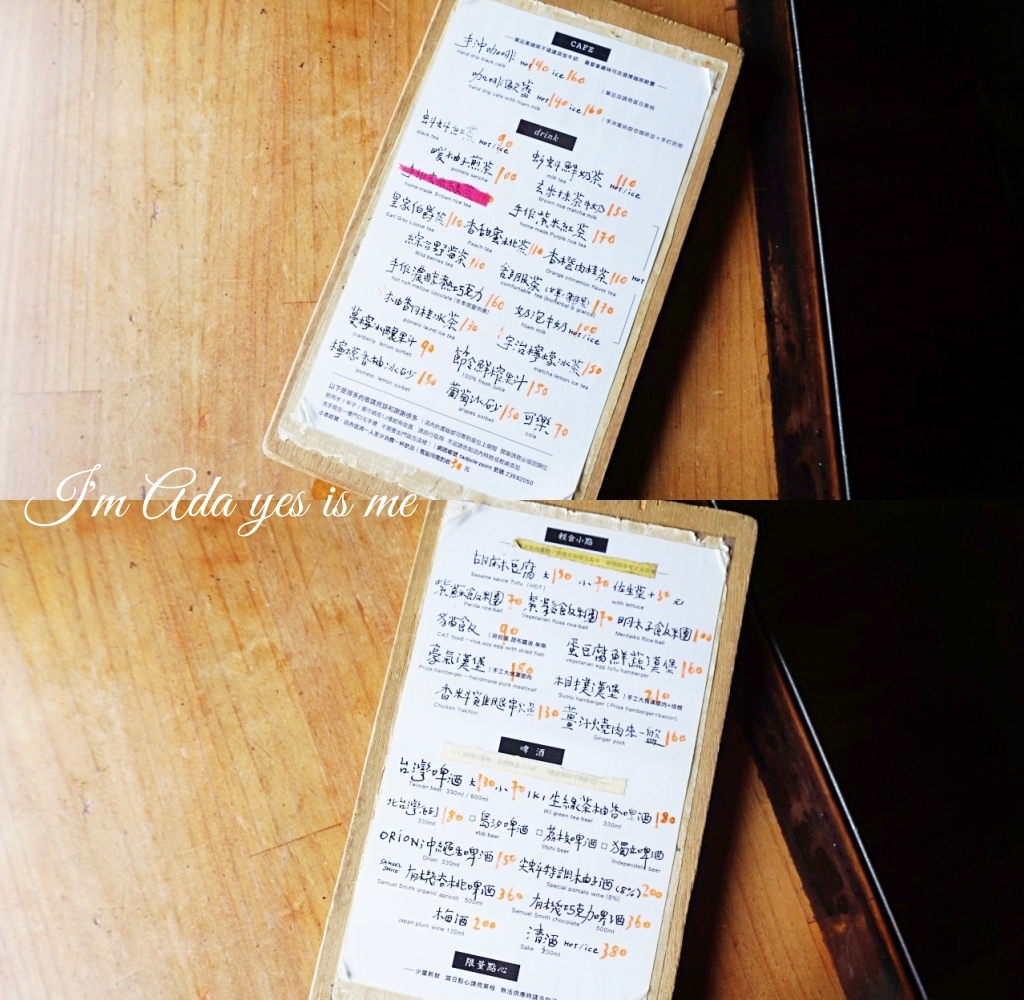 CAFE
手沖咖啡 HOT 140 ice 160
Hand drip black cafe
咖啡歐蕾 HOT 140 ice 160
hand drip cafe with foam milk
drink
蝌蚪紅茶 HOT/ice 90
black tea
蝌蚪鮮奶茶 110 HOT/ice
milk tea
暖柚子煎茶 100
pomelo sencha
玄米抹茶牛奶 150
brown rice matcha milk
home-made Brown rice tea
手作紫米紅茶 170
home-made Purple rice tea
皇家伯爵茶 110
Earl Grey Loose tea
香甜蜜桃茶 110
Peach tea
香橙肉桂茶 110 HOT
Orange cinnamon flavor tea
綜合野莓茶 110
Wild berries tea
舒服茶 170
手作濃醇熱巧克力 160
奶泡牛奶 100 HOT/ice
foam milk
柚香月桂冰茶 130
pomelo laurel ice tea
宇治檸檬冰茶 150
matcha lemon ice tea
蔓檸冰釀果汁 90
cranberry lemon sorbet
節令鮮榨果汁 150
100% fresh juice
檸檬香柚冰砂 150
pomelo lemon sorbet
葡萄冰砂 150
grapes sorbet
可樂 70
cola
I'm Ada yes is me
輕食小點
胡麻豆腐 大 130 小 70 佐生菜+30元
Sesame sauce Tofu (HOT)
with lettuce
紫蘇飯糰 70
Perilla rice-ball
紫鬆飯糰 70
Vegetarian floss rice-ball
明太子飯糰 100
Mentaiko Rice-ball
貓飯 90
蛋豆腐鮮蔬漢堡 160
vegetarian egg tofu hamburger
豪氣漢堡 180 手工大塊漢堡肉
Pride hamberger —handmade pork meatloaf
相撲漢堡 210 手工大塊漢堡肉+培根
Sumo hamberger ( Pride hamberger+bacon)
香料雞腿串燒 130
Chicken Yakitori
薑汁燒肉來一盤 160
Ginger pork
啤酒
台灣啤酒 大 130 小 70
Taiwan beer 330ml / 600ml
IKI 生綠茶柚香啤酒 180
IKI green tea beer 330ml
北台灣系列 180
330ml
□ 島汐啤酒
ebb beer
□ 荔枝啤酒
litchi beer
□ 獨立啤酒
Independent beer
ORION 沖繩生啤酒 150
Orion 330ml
蝌蚪特調柚子酒 (8%) 200
Special pomelo wine (8%)
SAMUEL SMITH 有機杏桃啤酒 360
Samuel Smith organic apricot 500ml
有機巧克力啤酒 360
Samuel Smith chocolate 500ml
梅酒 200
Japan plum wine 120ml
清酒 HOT/ice 380
Sake 200ml
限量點心